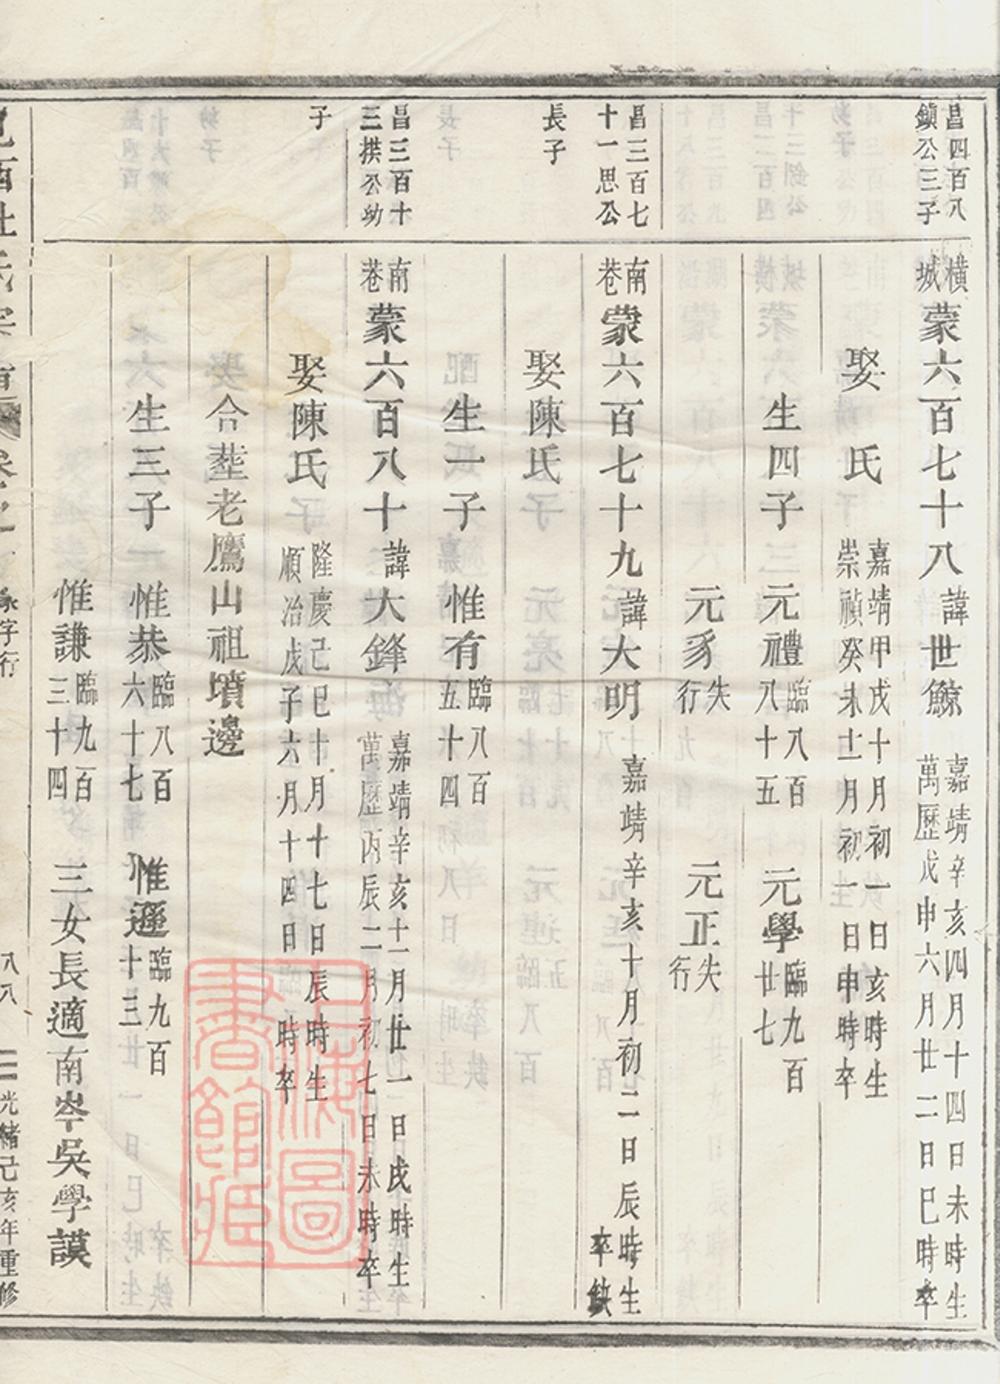 昌四百八
鎮公三子
橫城 蒙六百七十八 諱世鯨 嘉靖辛亥四月十四日未時生
萬歷戊申六月廿二日巳時卒
娶 氏 嘉靖甲戌十月初一日亥時生
崇禎癸未十二月初一日申時卒
生四子 元禮 臨八百八十五 元學 臨九百廿七
元豸 失行 元正 失行
昌三百七
十一思公
長子
南巷 蒙六百七十九 諱大明 嘉靖辛亥十月初二日辰時生
卒缺
娶陳氏
生一子 惟有 臨八百五十四
昌三百十
三拱公幼
子
南巷 蒙六百八十 諱大鋒 嘉靖辛亥十二月廿一日戌時生
萬歷丙辰二月初七日未時卒
娶陳氏 隆慶己巳十月十七日辰時生
順治戊子六月十四日 時卒
合塟老鷹山祖墳邊
生三子 惟恭 臨八百六十七 惟遜 臨九百十三
惟謙 臨九百三十四 三女長適南岑吳學謨
杜氏宗 卷之 字行 八八 光緒己亥年重修
上海圖書館藏